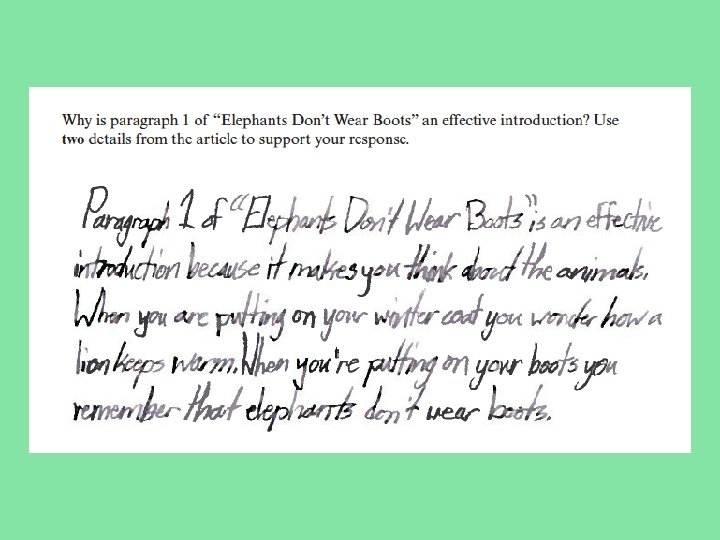 Why is paragraph 1 of “Elephants Don’t Wear Boots” an effective introduction? Use
two details from the article to support your response.
Paragraph 1 of “Elephants Don't Wear Boots” is an effective
introduction because it makes you think about the animals.
When you are putting on your winter coat you wonder how a
lion keeps warm. When you're putting on your boots you
remember that elephants don't wear boots.